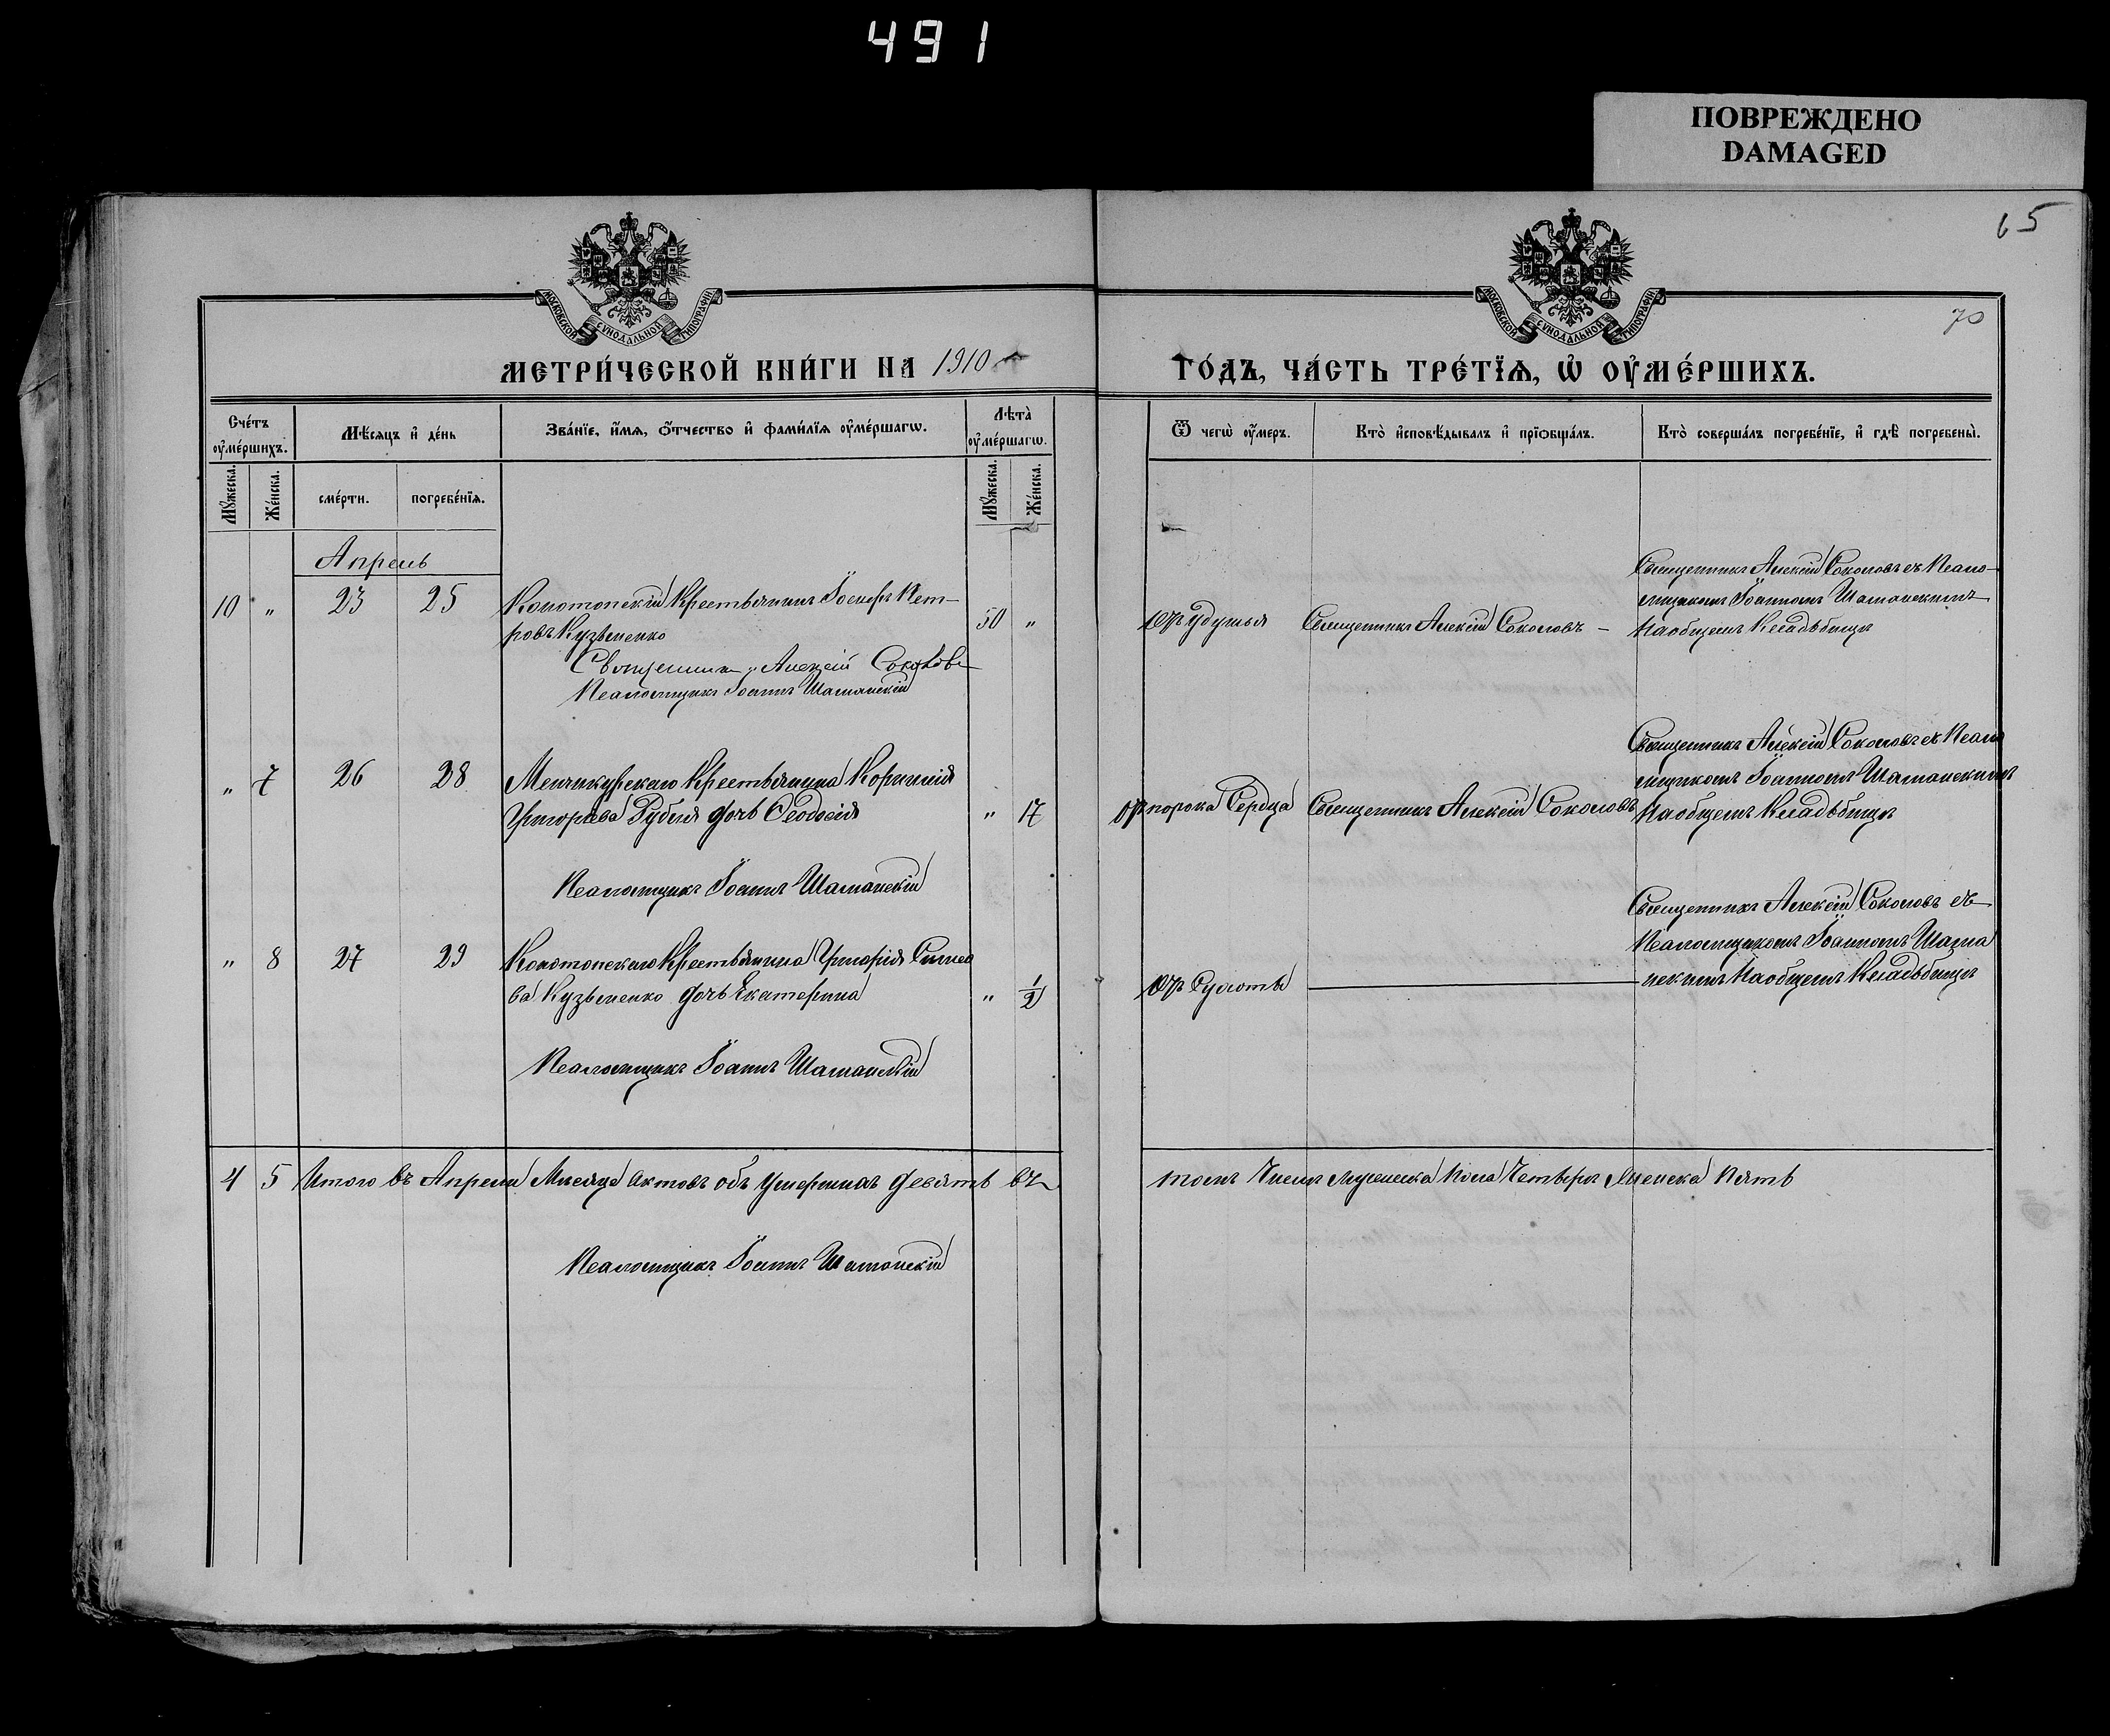 491
ПОВРЕЖДЕНО
DAMAGED
65
70
МОСКОВСКОЙ СУНОДАЛЬНОЙ ТИПОГРАФІИ
МОСКОВСКОЙ СУНОДАЛЬНОЙ ТИПОГРАФІИ
МЕТРИ́ЧЕСКОЙ КНИ́ГИ НА 1910
ГО́ДЪ, ЧА́СТЬ ТРЕ́ТЇѦ, Ѡ҆ ОУ҆МЕ́РШИХЪ.
Сче́тъ оу҆ме́ршихъ.
Мѣ́сяцъ и҆ де́нь
Зва́нїе, и҆́мѧ, ѻ҆́тчество и҆ фами́лїѧ оу҆ме́ршагѡ.
Лѣта̀ оу҆ме́ршагѡ.
Ѿ чегѡ̀ оу҆́меръ.
Кто̀ и҆сповѣ́дывалъ и҆ прїѡбща́лъ.
Кто̀ соверша́лъ погребе́нїе, и҆ гдѣ̀ погребены̀.
Мꙋ́жеска. Же́нска. сме́рти. погребе́нїѧ. Мꙋ́жеска. Же́нска.
Апрель
10 " 23 25 Конотопскій Крестьянинъ Іосифъ Пет-
ровъ Кузьменко 50 "
Священникъ Алексій Соколовъ
Псаломщикъ Іоаннъ Шаманскій
Отъ удушья Священникъ Алексій Соколовъ –
Священникъ Алексій Соколовъ съ Псало-
мщикомъ Іоанномъ Шаманскимъ
На общемъ Кладбищѣ
" 7 26 28 Менчикурскаго Крестьянина Корнилія
Григорьева Рубля дочь Ѳеодосія " 17
Псаломщикъ Іоаннъ Шаманскій
От порока Сердца Священникъ Алексій Соколовъ
Священникъ Алексій Соколовъ съ Псало
мщикомъ Іоанномъ Шаманскимъ
На общемъ Кладбищѣ
" 8 27 29 Конотопскаго Крестьянина Григорія
ва Кузьменко дочь Екатерина " 1/2
Псаломщикъ Іоаннъ Шаманскій
Отъ Сухоты
Священникъ Алексій Соколовъ съ
Псаломщикомъ Іоанномъ Шама
нскимъ На общемъ Кладбищѣ
4 5 Итого въ Апрелѣ Мѣсяцѣ актовъ объ умершихъ девять въ
томъ Числѣ мужеска пола Четыре Женска Пять
Псаломщикъ Іоаннъ Шаманскій